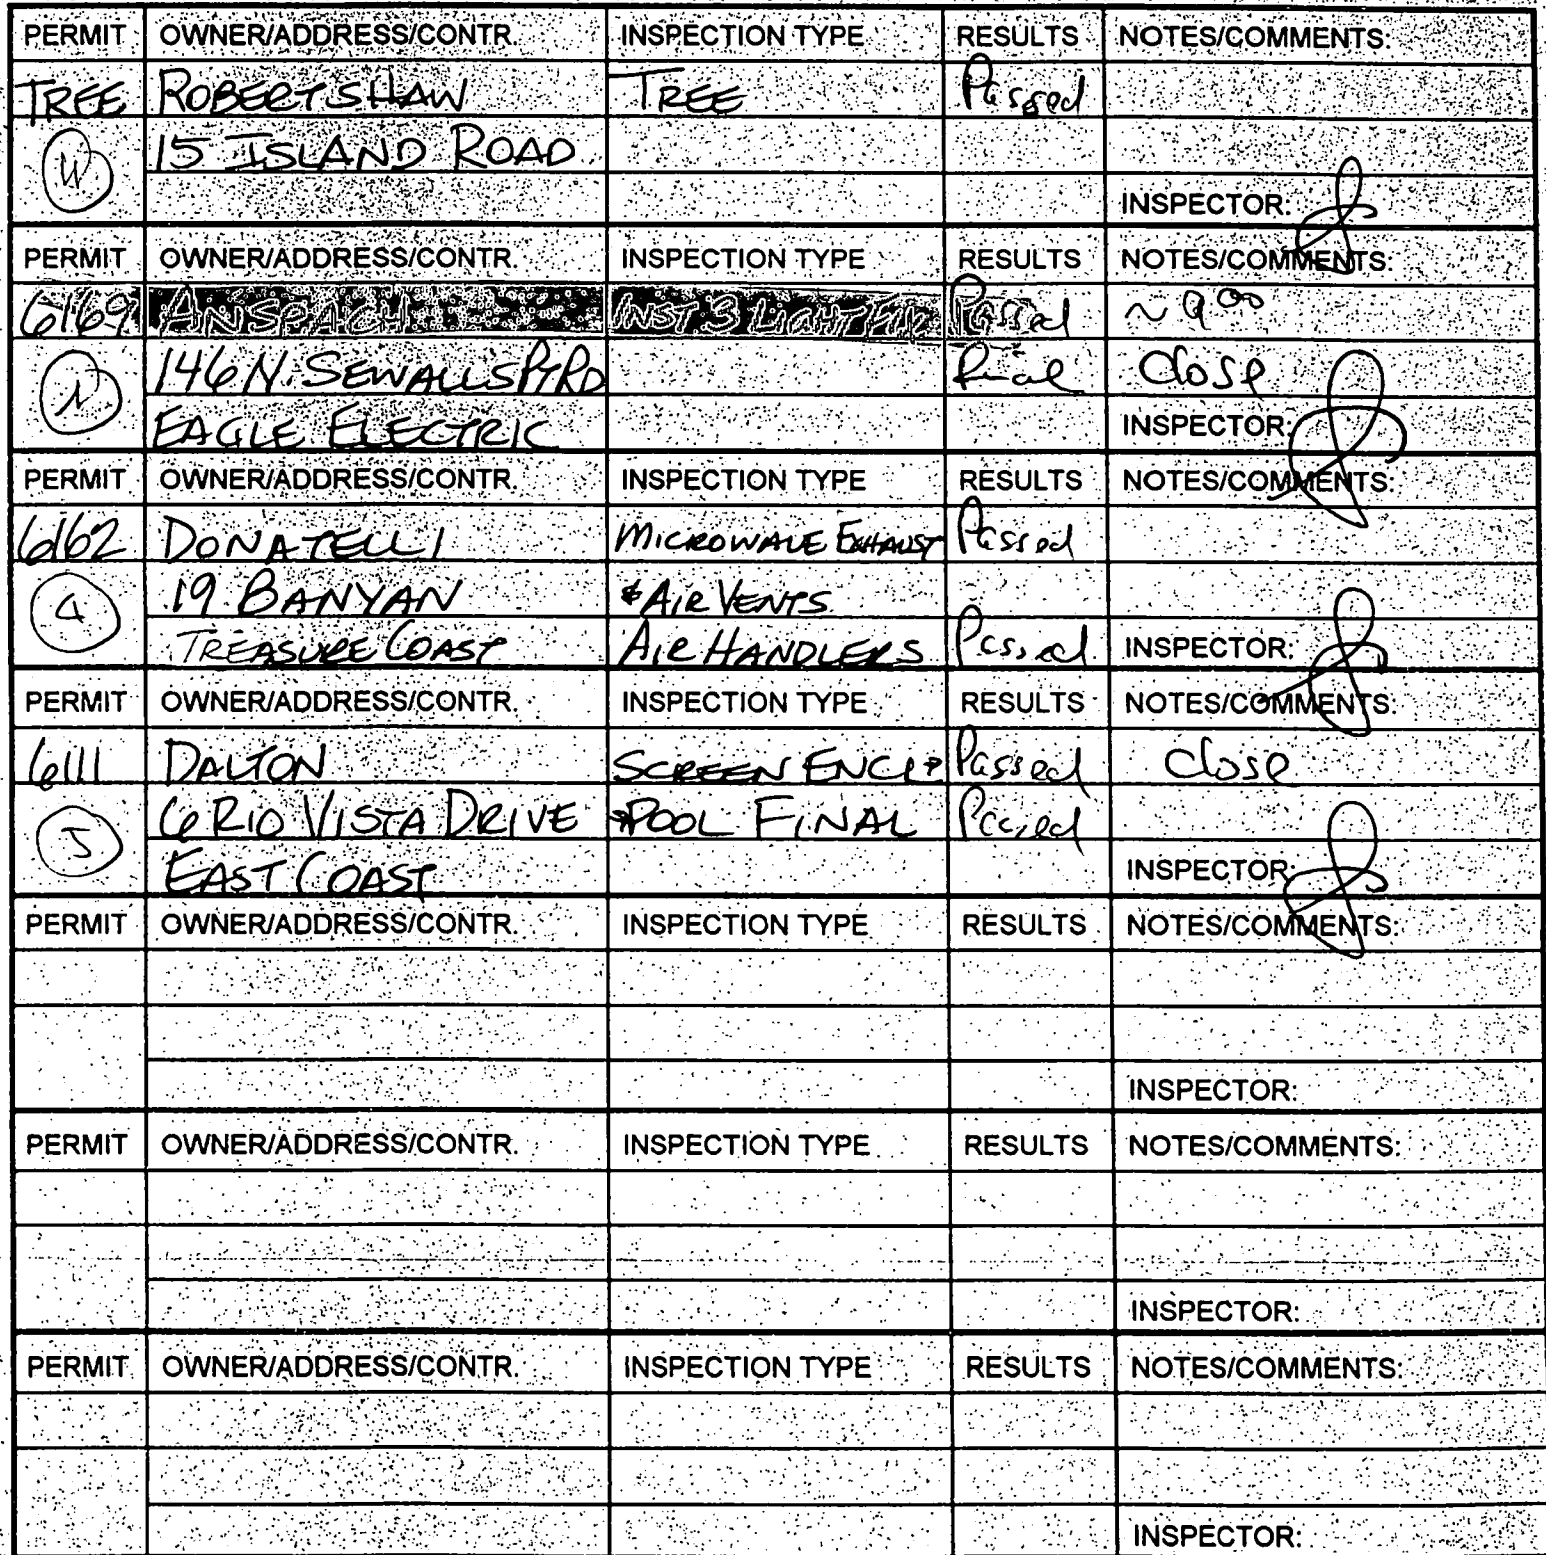 PERMIT OWNER/ADDRESS/CONTR. INSPECTION TYPE RESULTS NOTES/COMMENTS:
TREE ROBERTSHAW TREE Passed
15 ISLAND ROAD
INSPECTOR:
PERMIT OWNER/ADDRESS/CONTR. INSPECTION TYPE RESULTS NOTES/COMMENTS:
6169 ANSPACH INST 3 LIGHT FIX Passed ~ 9 00
146 N. SEWALLS PT RD Final Close
EAGLE ELECTRIC INSPECTOR:
PERMIT OWNER/ADDRESS/CONTR. INSPECTION TYPE RESULTS NOTES/COMMENTS:
6162 DONATELLI MICROWAVE EXHAUST Passed
19 BANYAN & AIR VENTS
TREASURE COAST AIR HANDLERS Passed INSPECTOR:
PERMIT OWNER/ADDRESS/CONTR. INSPECTION TYPE RESULTS NOTES/COMMENTS:
6111 DALTON SCREEN ENCL Passed Close
5 6 RIO VISTA DRIVE POOL FINAL Passed
EAST COAST INSPECTOR:
PERMIT OWNER/ADDRESS/CONTR. INSPECTION TYPE RESULTS NOTES/COMMENTS:
INSPECTOR:
PERMIT OWNER/ADDRESS/CONTR. INSPECTION TYPE RESULTS NOTES/COMMENTS:
INSPECTOR:
PERMIT OWNER/ADDRESS/CONTR. INSPECTION TYPE RESULTS NOTES/COMMENTS:
INSPECTOR: